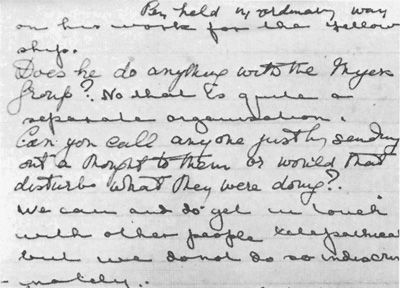 Pen held in ordinary way
on his work for the fellow
ship.
Does he do anything with the Myers
Group? No that is quite a
separate organisation.
Can you call anyone just by sending
out a thought to them or would that
disturb what they were doing?
We can and do get in touch
with other people telepathica
but we do not do so indiscrim
- inately.